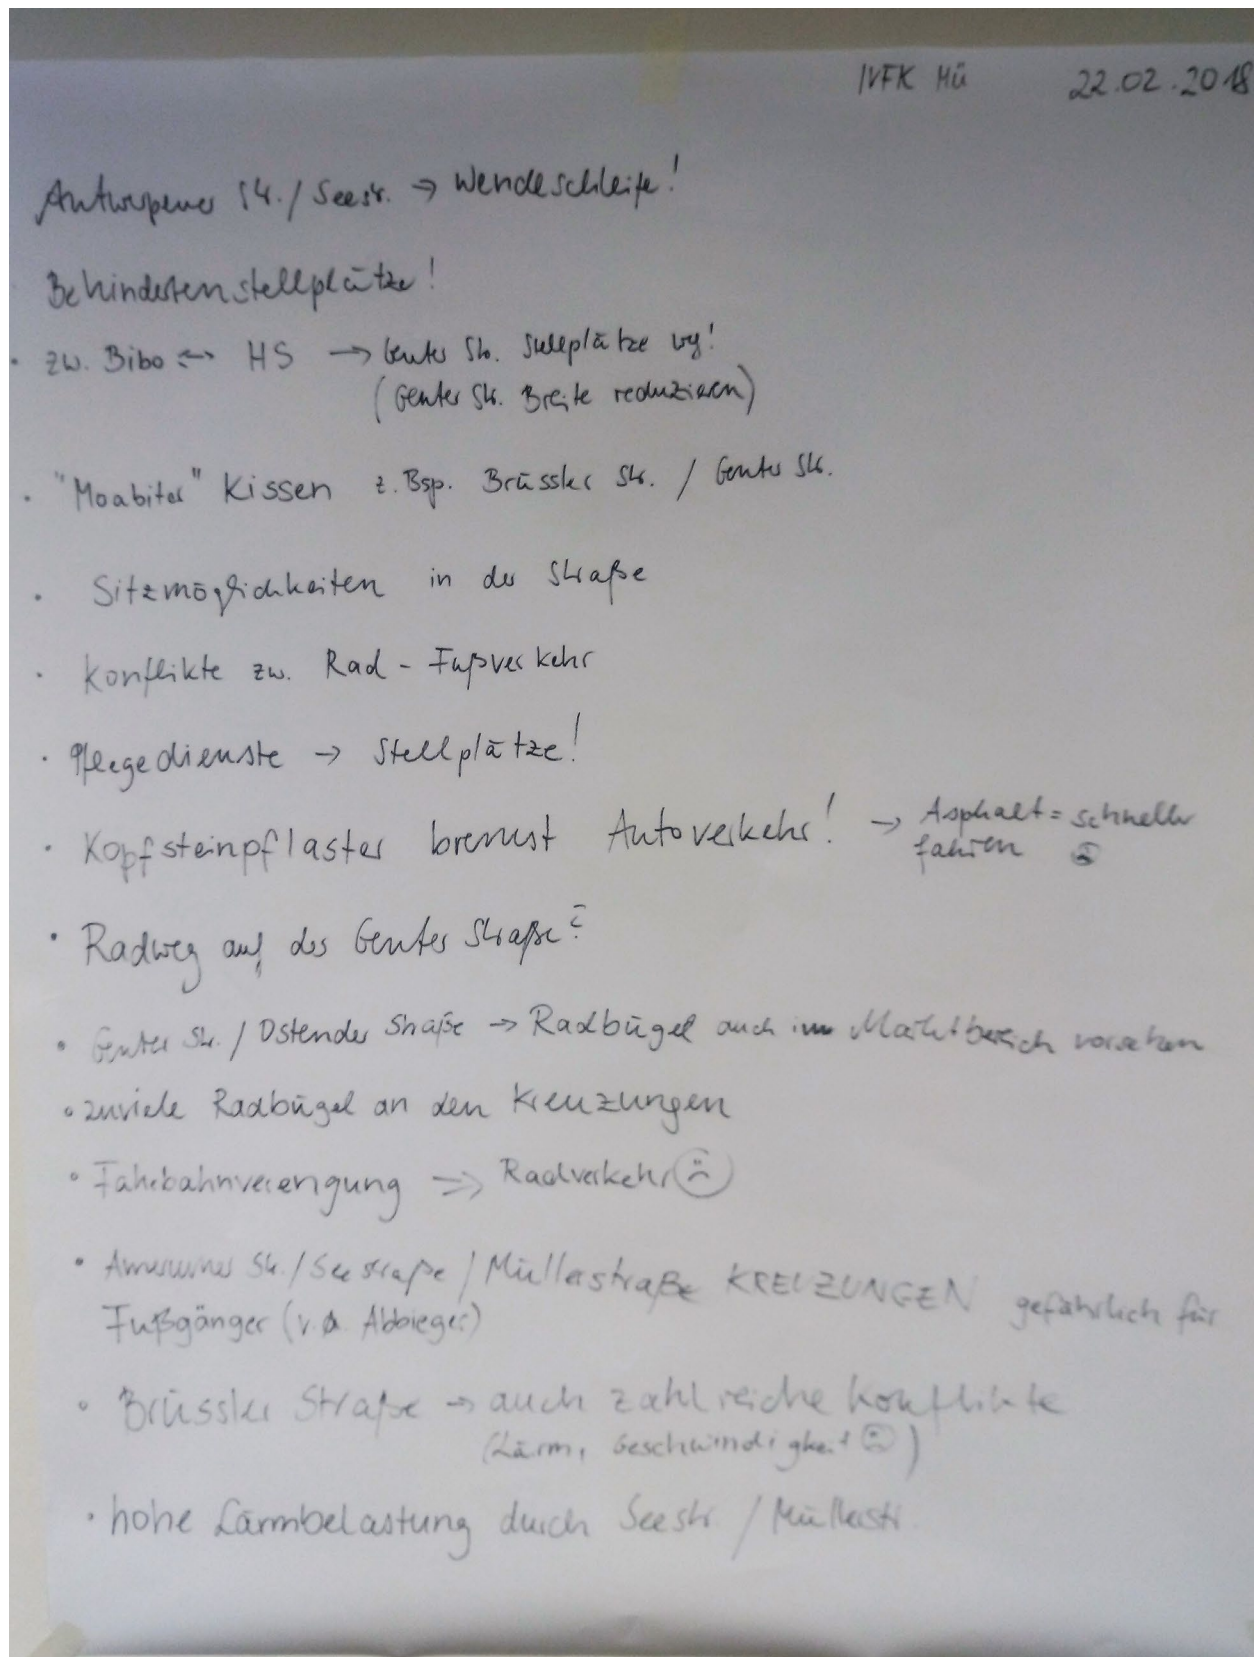 IVFK Mü 22.02.2018
Antwerpener Str. / Seestr. → Wendeschleife!
Behindertenstellplätze!
• zw. Bibo ↔ HS → Genter Str. Stellplätze weg!
(Genter Str. Breite reduzieren)
• "Moabiter" Kissen z. Bsp. Brüssler Str. / Genter Str.
• Sitzmöglichkeiten in der Straße
• Konflikte zw. Rad - Fußverkehr
• Pflegedienste → Stellplätze!
• Kopfsteinpflaster bremst Autoverkehr! → Asphalt = schneller
fahren ☹
• Radweg auf der Genter Straße?
• Genter Str. / Ostender Straße → Radbügel auch im Marktbereich vorsehen
• zuviele Radbügel an den Kreuzungen
• Fahrbahnverengung ⇒ Radverkehr ☹
• Str. / Seestraße / Müllerstraße KREUZUNGEN gefährlich für
Fußgänger (v.a. Abbieger)
• Brüssler Straße → auch zahlreiche Konflikte
(Lärm, Geschwindigkeit ☹)
• hohe Lärmbelastung durch Seestr. / Müllerstr.